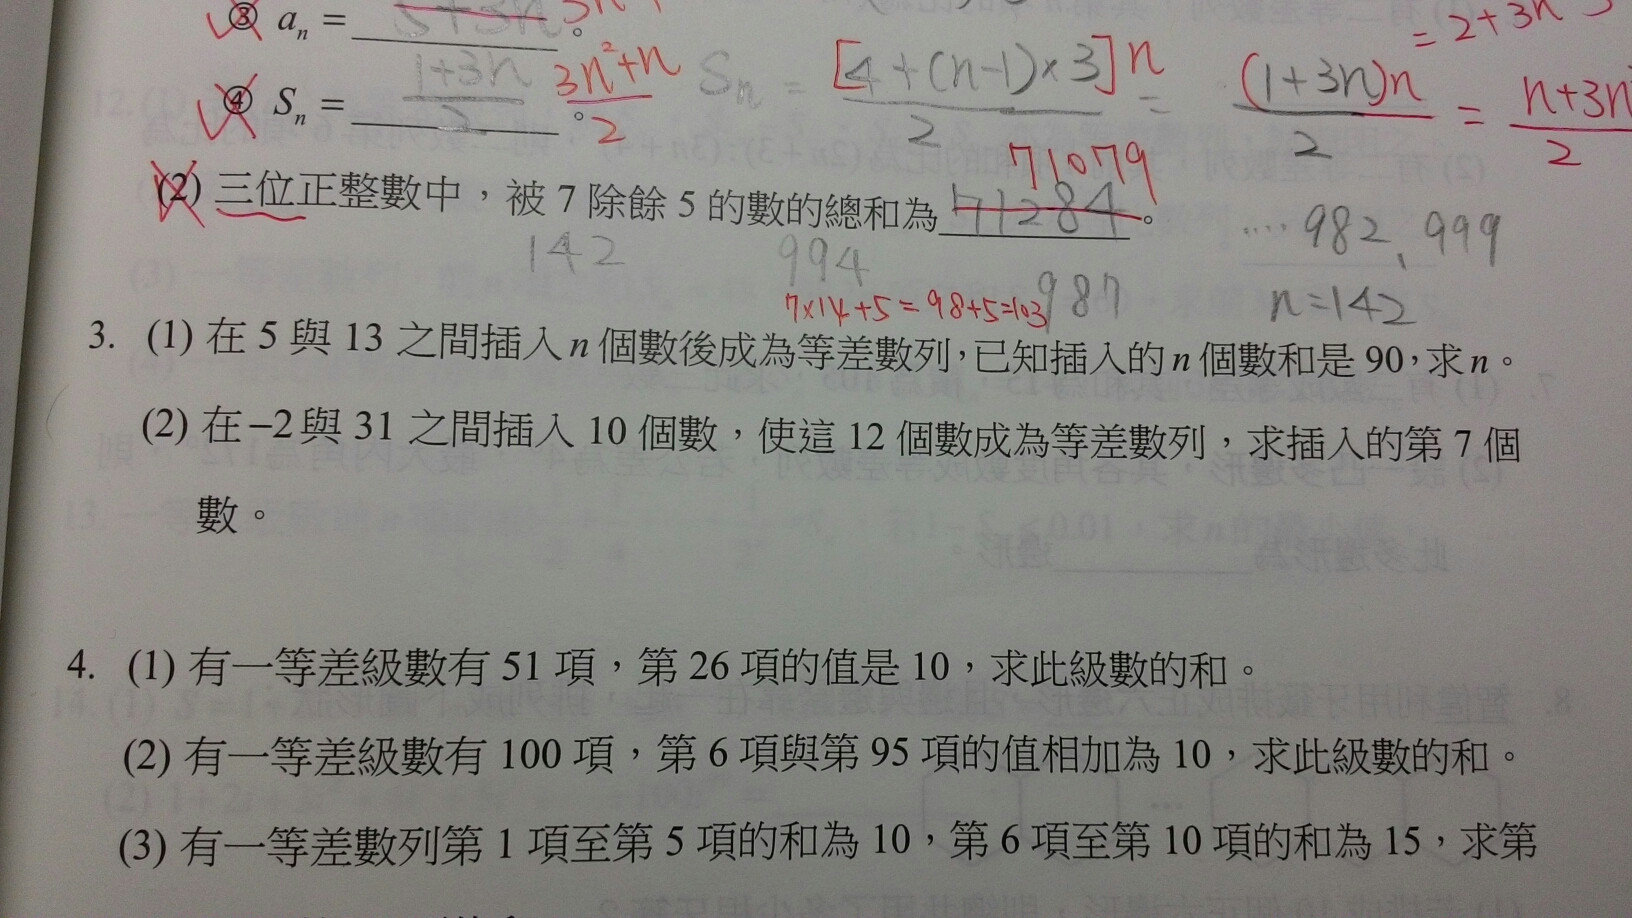 ③ aₙ = 5+3n 3n+
= 2+3n
④ Sₙ = 1+3n/2 3n²+n/2 。 Sₙ = [4+(n-1)×3]n/2 = (1+3n)n/2 = n+3n²/2
(2) 三位正整數中，被 7 除餘 5 的數的總和為 71284 71079 。
142 994 ‧‧‧‧ 982、999
7×14+5=98+5=103 987 n=142
3. (1) 在 5 與 13 之間插入 n 個數後成為等差數列，已知插入的 n 個數和是 90，求 n。
(2) 在 −2 與 31 之間插入 10 個數，使這 12 個數成為等差數列，求插入的第 7 個
數。
4. (1) 有一等差級數有 51 項，第 26 項的值是 10，求此級數的和。
(2) 有一等差級數有 100 項，第 6 項與第 95 項的值相加為 10，求此級數的和。
(3) 有一等差數列第 1 項至第 5 項的和為 10，第 6 項至第 10 項的和為 15，求第